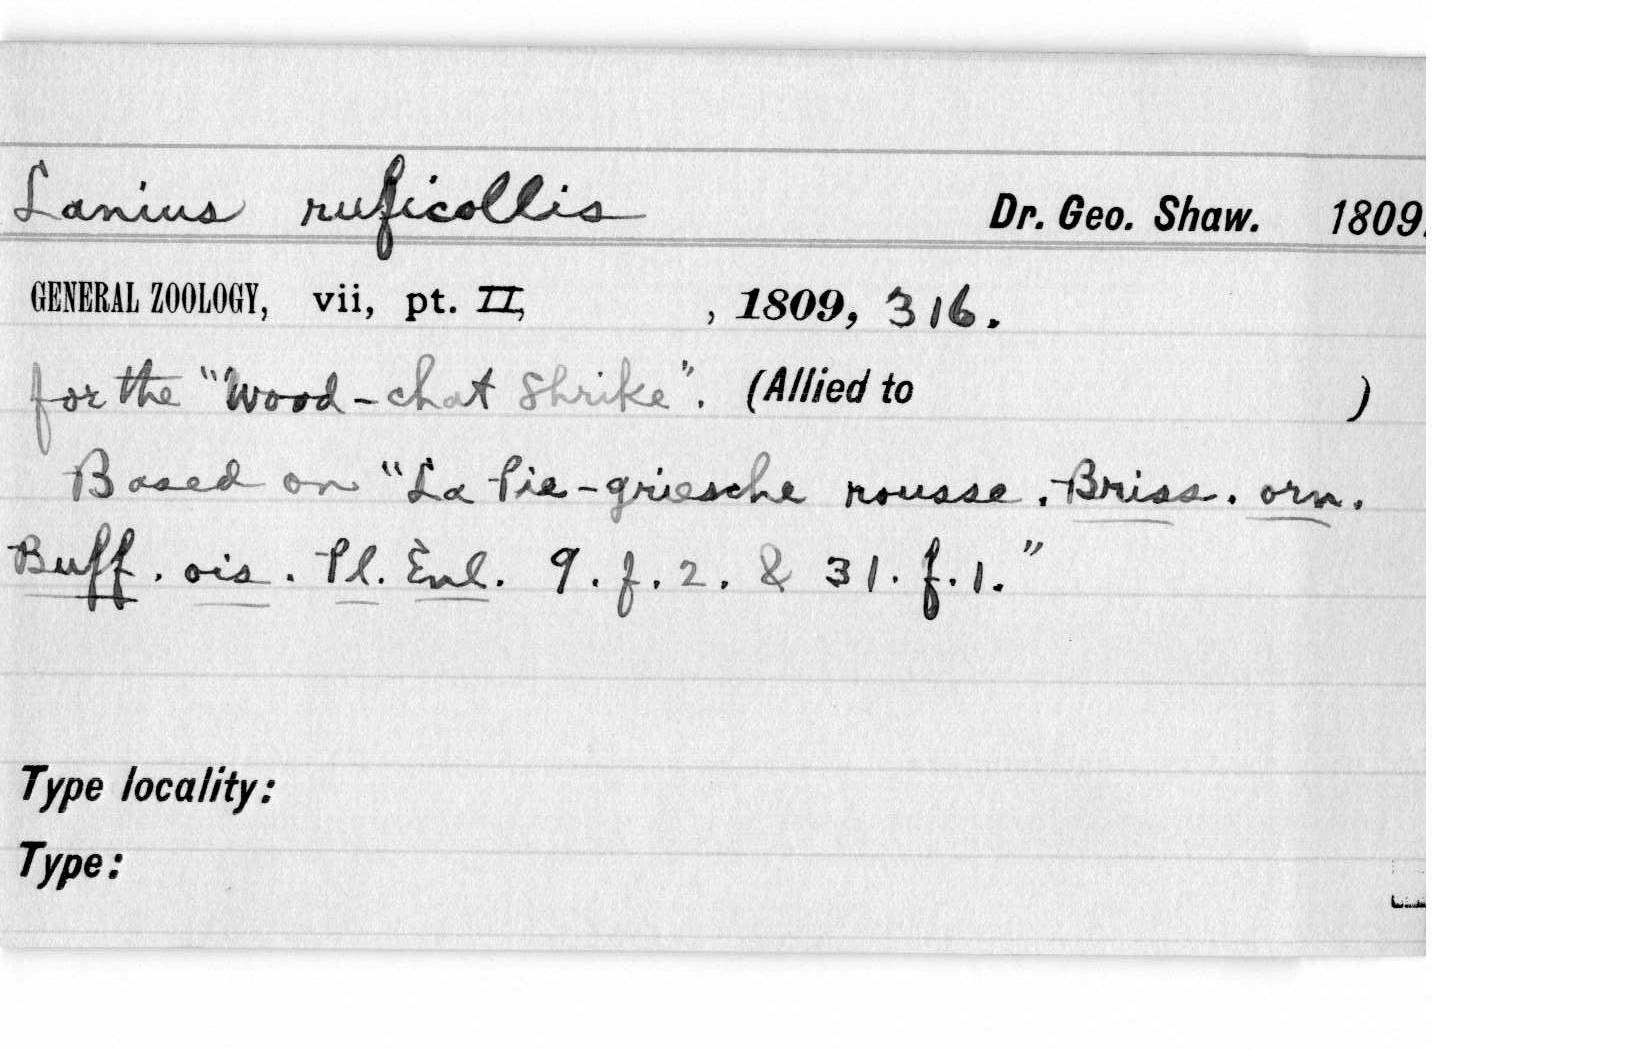 Lanius ruficollis Dr. Geo. Shaw. 1809.
GENERAL ZOOLOGY, vii, pt. II, , 1809, 316.
for the "Wood-chat Shrike". (Allied to )
Based on "La Pie-griesche rousse. Briss. orn.
Buff. ois. Pl. Enl. 9. f. 2. & 31. f. 1."
Type locality:
Type: